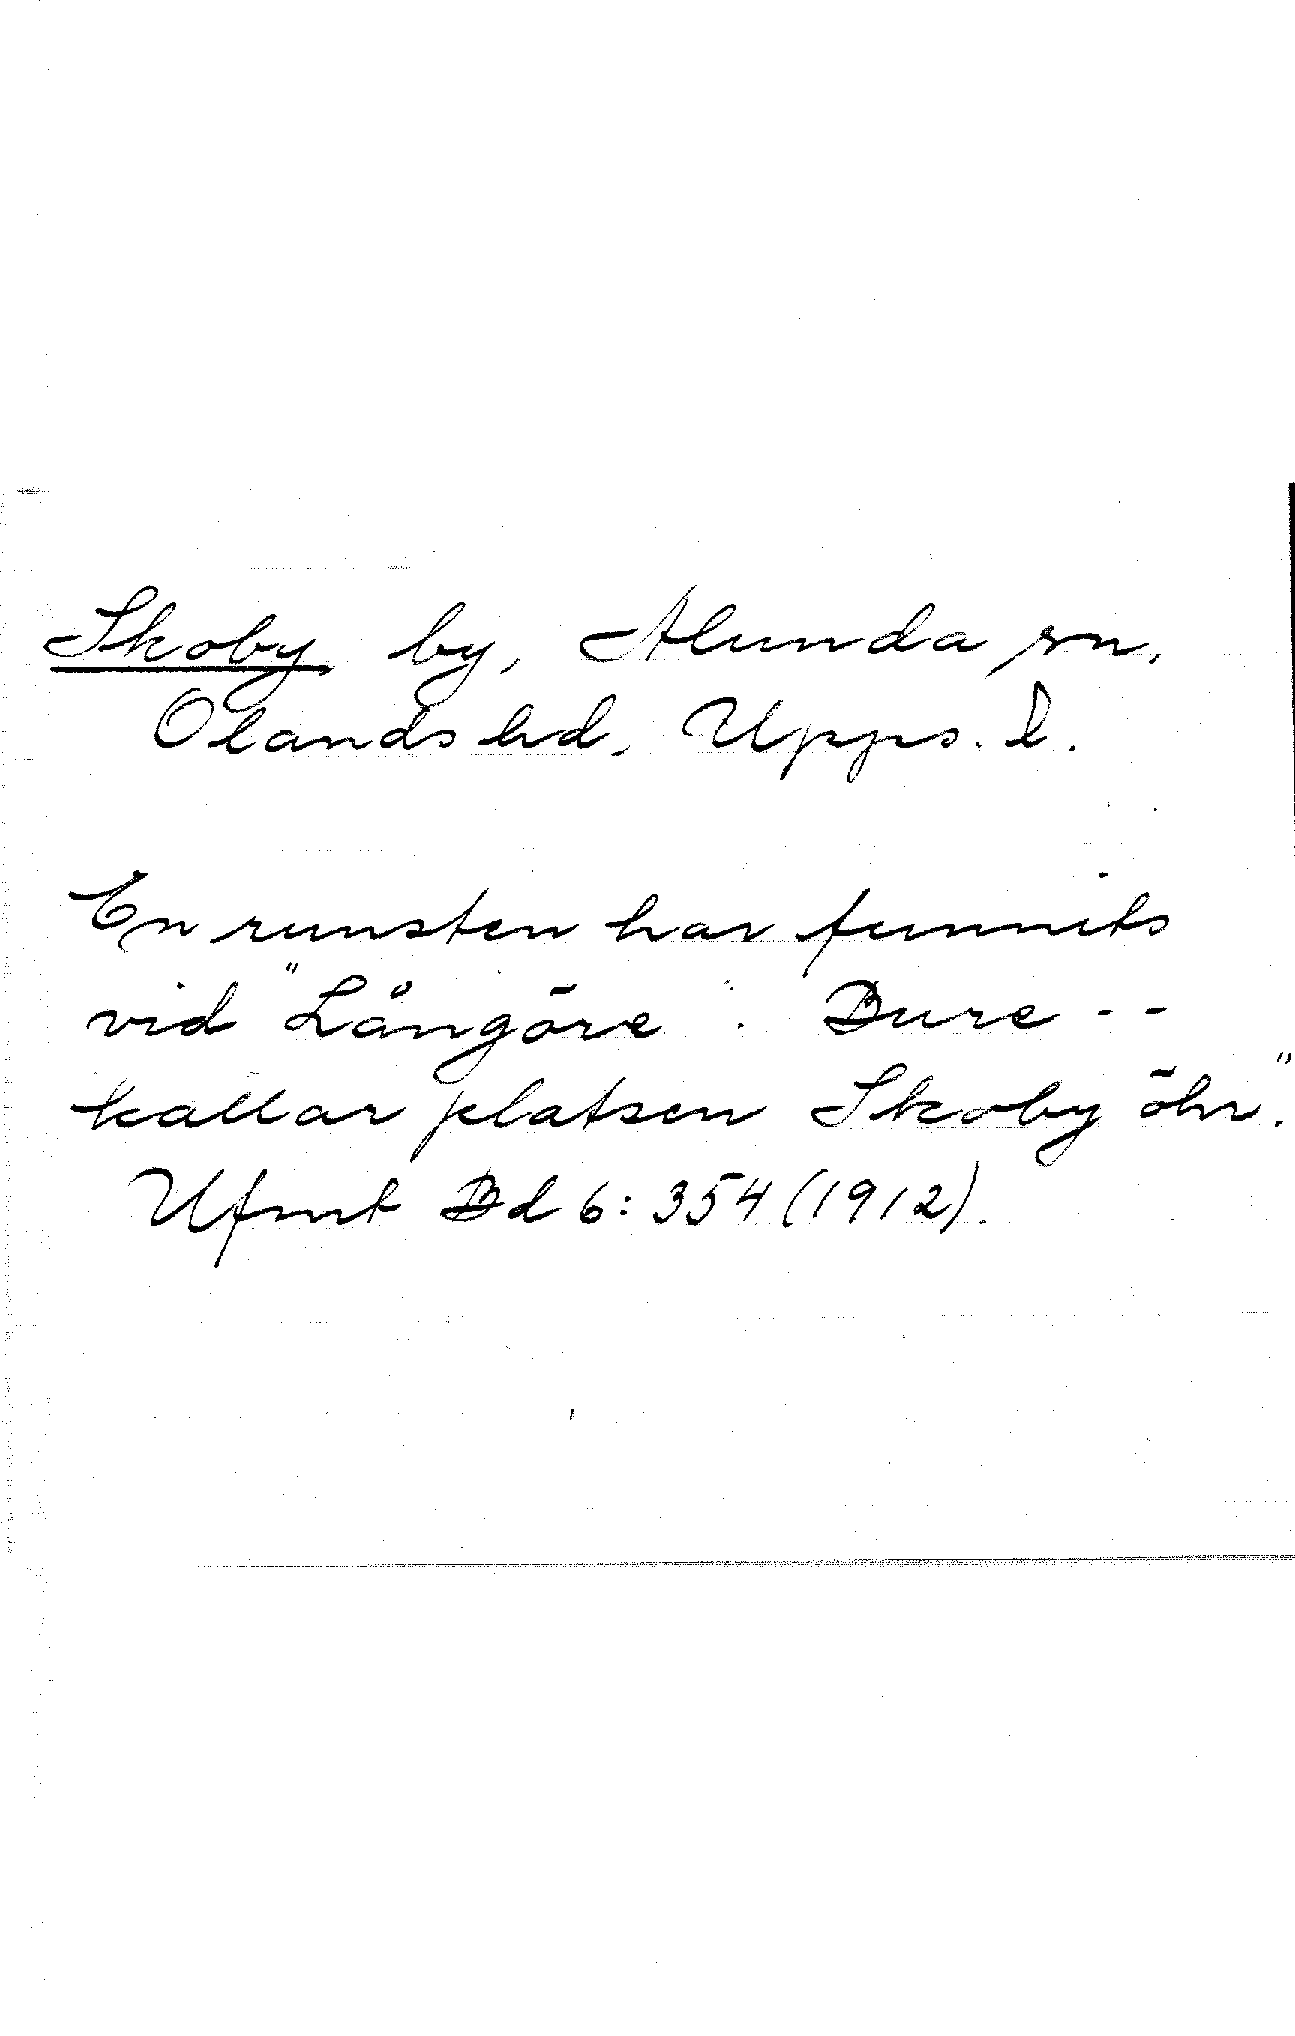 Skoby by, Alunda sn,
Olands hd, Upps. l.
En runsten har funnits
vid "Långöre". Bure --
kallar platsen Skoby öhr."
Ufmt Bd 6: 354 (1912).